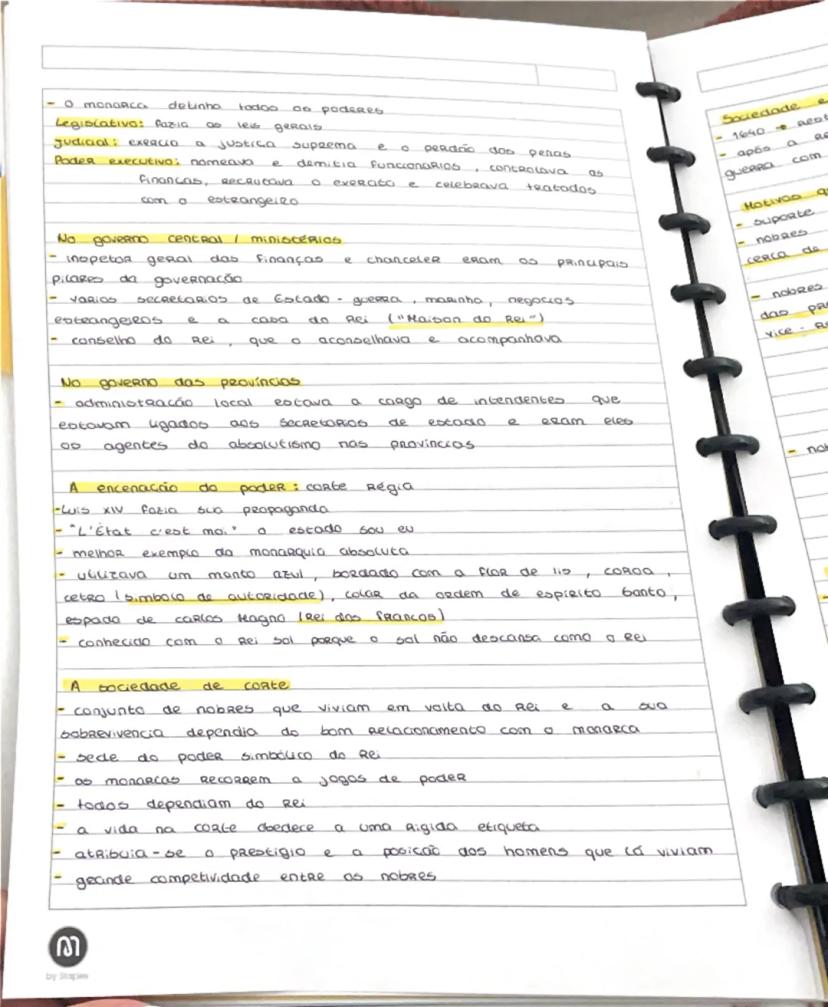 - O monarca detinha todos os poderes
Legislativo: fazia as leis gerais
Judicial: exercia a justiça suprema e o perdão das penas
Poder executivo: nomeava e demitia funcionarios, controlava as
finanças, recrutava o exercito e celebrava tratados
com o estrangeiro
No governo central / ministérios
- inspetor geral das finanças e chanceler eram os principais
pilares da governação
- varios secretarios de Estado - guerra, marinha, negocios
estrangeiros e a casa do Rei ("Maison do Rei")
- conselho do Rei, que o aconselhava e acompanhava
No governo das províncias
- administração local estava a cargo de intendentes que
estavam ligados aos secretarios de estado e eram eles
os agentes do absolutismo nas províncias
A encenação do poder: corte Régia
- Luis XIV fazia sua propaganda
- "L'État c'est moi" o estado sou eu
- melhor exemplo da monarquia absoluta
- utilizava um manto azul, bordado com a flor de lis, coroa,
cetro (simbolo de autoridade), colar da ordem de espírito santo,
espada de Carlos Magno (Rei dos francos)
- conhecido com o Rei sol porque o sol não descansa como o rei
A sociedade de corte
- conjunto de nobres que viviam em volta do Rei e a sua
sobrevivencia dependia do bom relacionamento com o monarca
- sede do poder simbólico do Rei
- os monarcas recorrem a jogos de poder
- todos dependiam do rei
- a vida na corte obedece a uma rigida etiqueta
- atribuia-se o prestigio e a posição dos homens que lá viviam
- grande competividade entre os nobres
M
by Staples
Sociedade e
- 1640 → Rest
- após a Re
guerra com
Motivos q
- suporte
- nobres
cerca de
- nobres
das pr
vice - R
- nob